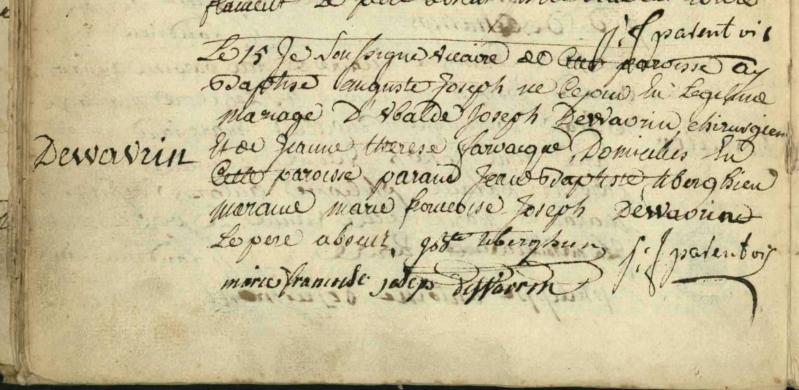 flament Le pere absent
j: f parent vic
Le 15 Je Soussigne vicaire de Cette paroisse ay
Baptise auguste Joseph ne Ce jour En Legitime
mariage D'Ubalde Joseph Dewavrin, chirurgien
Dewavrin
Et de Jeanne therese farvacque, Domicilies En
Cette paroisse parain Jean Baptiste tiberghien
maraine marie francoise Joseph Dewavrin
Le pere absent, jean bte tiberghien
j: f parent vic
marie francoise joseph dewavrin